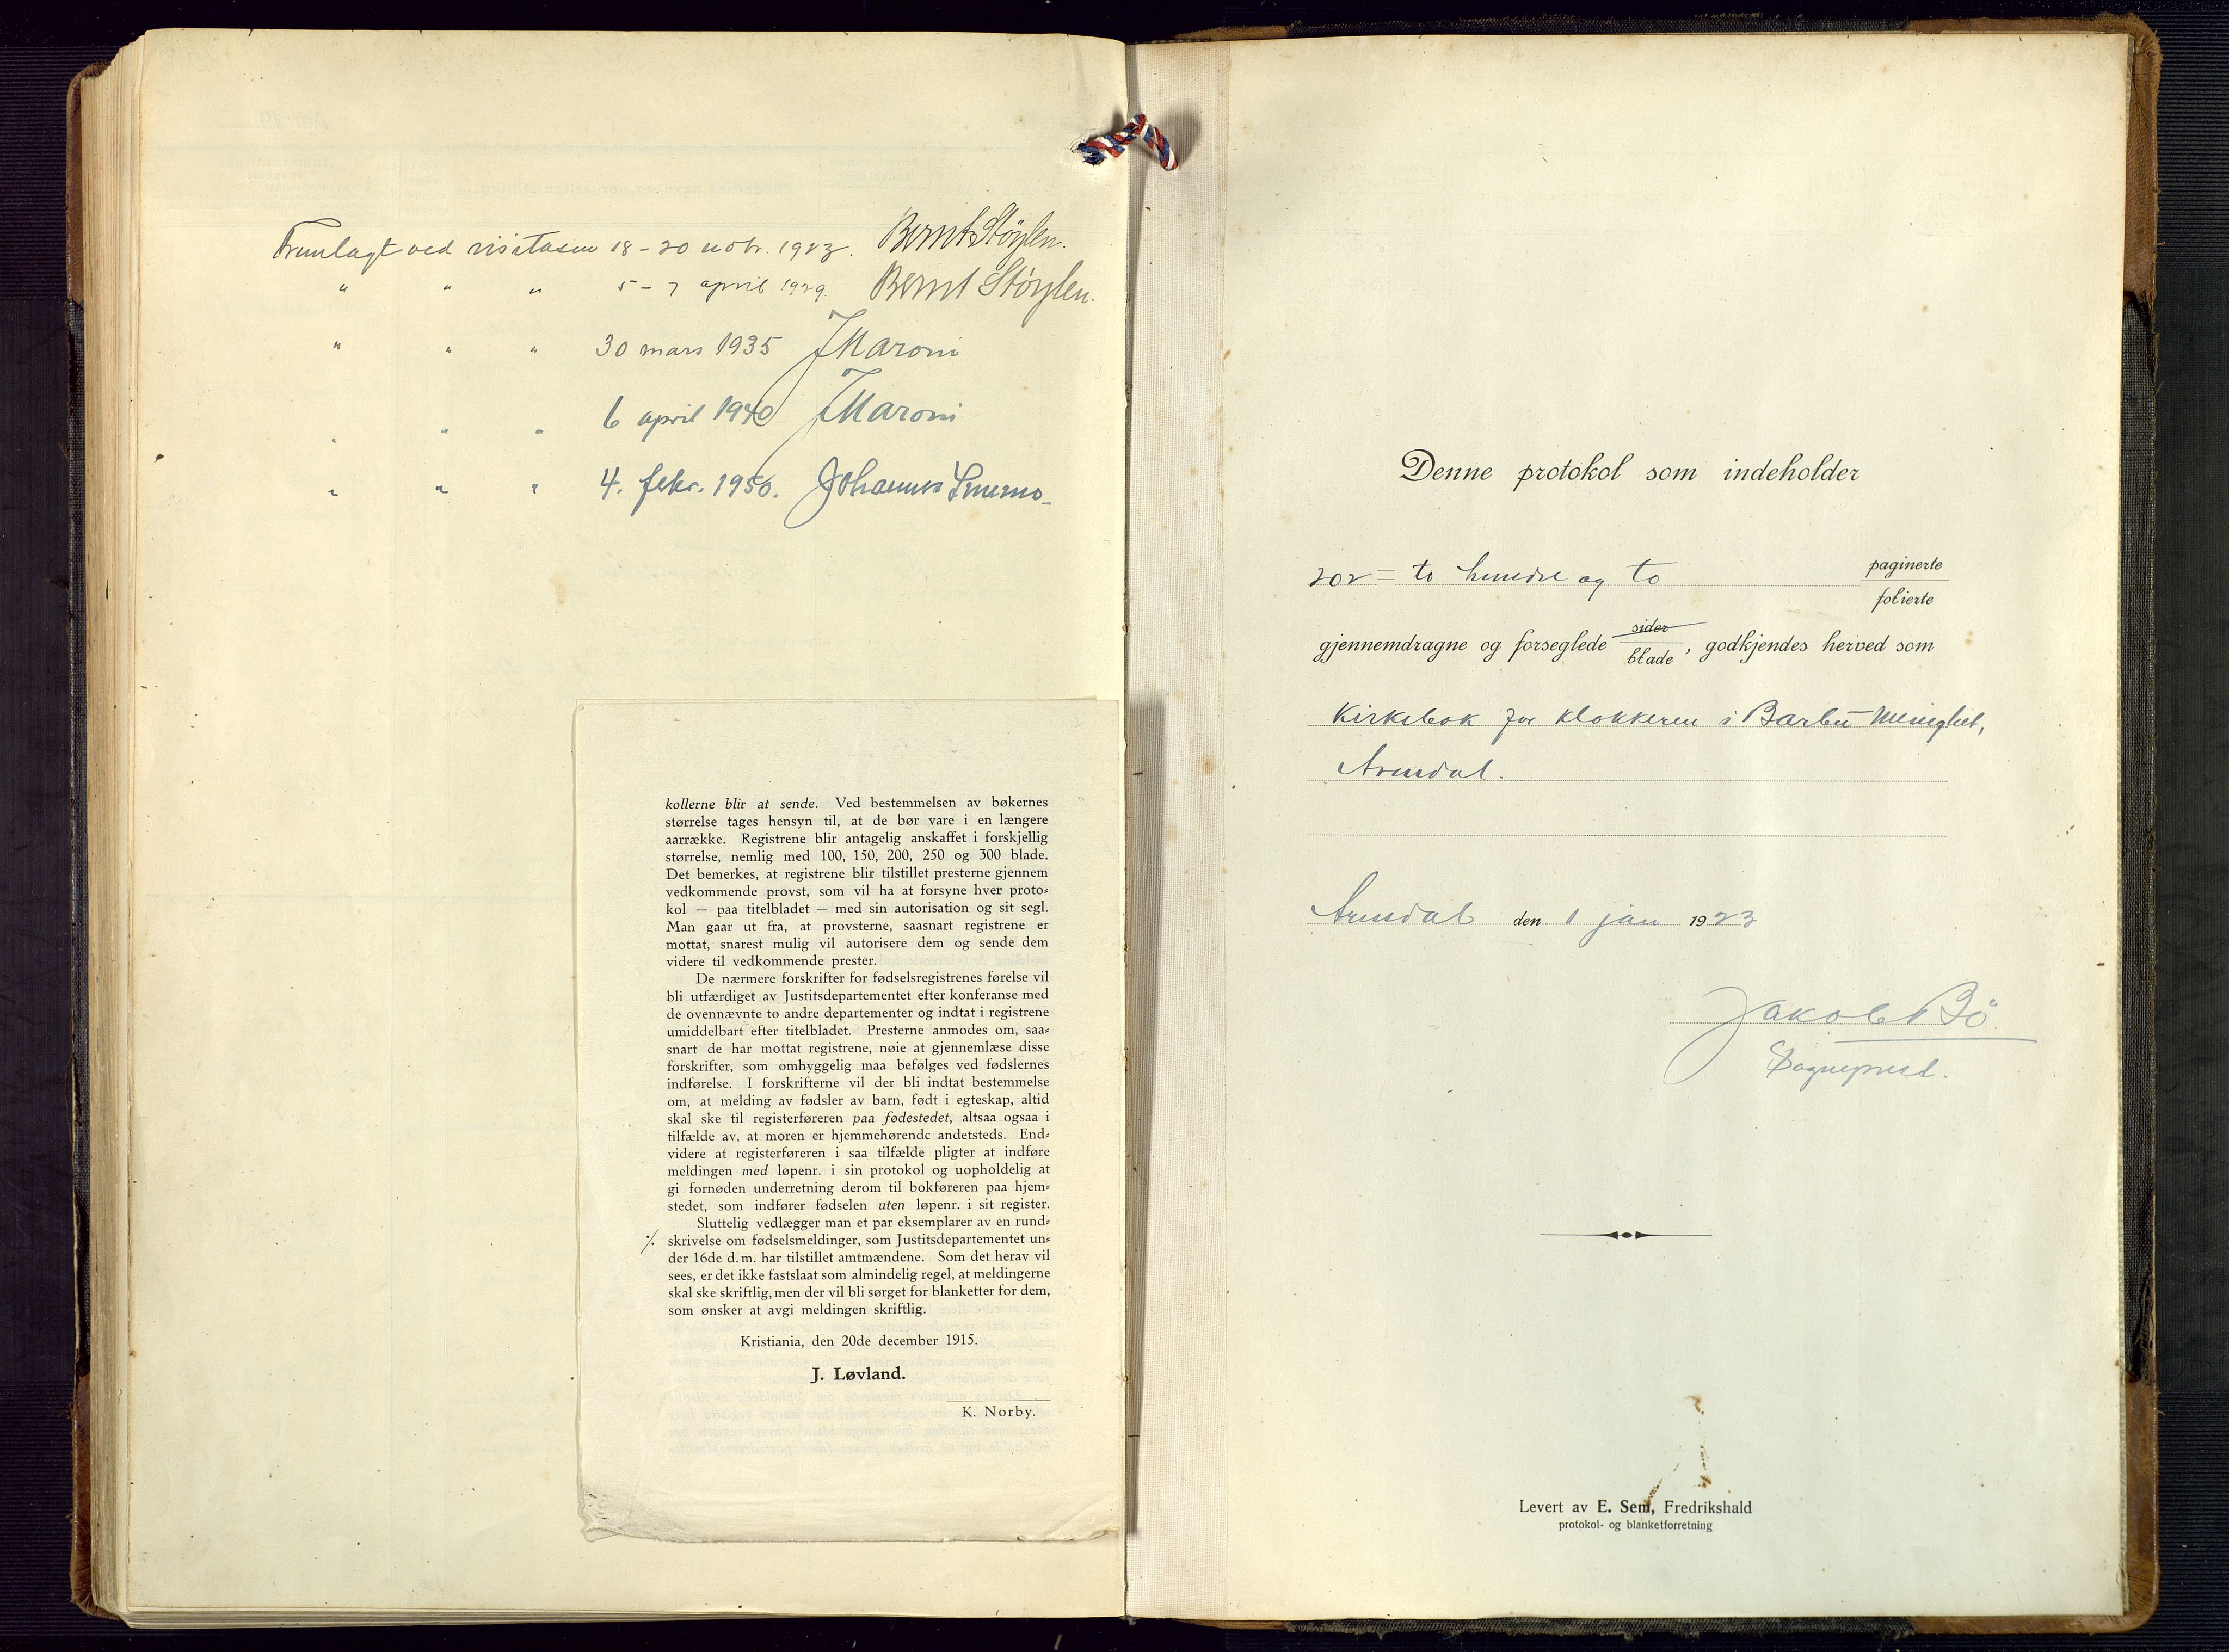 Fremlagt ved visitasen 18-20 novbr. 1923. Bernt Støylen.
" " " 5-7 april 1929. Bernt Støylen.
" " " 30 mars 1935 J Maroni
" " " 6 april 1940 J Maroni
" " " 4. febr. 1950. Johannes Smemo
kollerne blir at sende. Ved bestemmelsen av bøkernes
størrelse tages hensyn til, at de bør vare i en længere
aarrække. Registrene blir antagelig anskaffet i forskjellig
størrelse, nemlig med 100, 150, 200, 250 og 300 blade.
Det bemerkes, at registrene blir tilstillet presterne gjennem
vedkommende provst, som vil ha at forsyne hver proto-
kol — paa titelbladet — med sin autorisation og sit segl.
Man gaar ut fra, at provsterne, saasnart registrene er
mottat, snarest mulig vil autorisere dem og sende dem
videre til vedkommende prester.
De nærmere forskrifter for fødselsregistrenes førelse vil
bli utfærdiget av Justitsdepartementet efter konferanse med
de ovennævnte to andre departementer og indtat i registrene
umiddelbart efter titelbladet. Presterne anmodes om, saa-
snart de har mottat registrene, nøie at gjennemlæse disse
forskrifter, som omhyggelig maa befølges ved fødslernes
indførelse. I forskrifterne vil der bli indtat bestemmelse
om, at melding av fødsler av barn, født i egteskap, altid
skal ske til registerføreren paa fødestedet, altsaa ogsaa i
tilfælde av, at moren er hjemmehørende andetsteds. End-
videre at registerføreren i saa tilfælde pligter at indføre
meldingen med løpenr. i sin protokol og uopholdelig at
gi fornøden underretning derom til bokføreren paa hjem-
stedet, som indfører fødselen uten løpenr. i sit register.
Sluttelig vedlægger man et par eksemplarer av en rund-
./. skrivelse om fødselsmeldinger, som Justitsdepartementet un-
der 16de d. m. har tilstillet amtmændene. Som det herav vil
sees, er det ikke fastslaat som almindelig regel, at meldingerne
skal ske skriftlig, men der vil bli sørget for blanketter for dem,
som ønsker at avgi meldingen skriftlig.
Kristiania, den 20de december 1915.
J. Løvland.
K. Norby.
Denne protokol som indeholder
202 = to hundre og to paginerte
folierte
gjennemdragne og forseglede sider
blade, godkjendes herved som
Kirkebok for klokkeren i Barbu menighet,
Arendal.
Arendal den 1 jan 1923
Jakob Bö
Sogneprest.
Levert av E. Sem, Fredrikshald
protokol- og blanketforretning